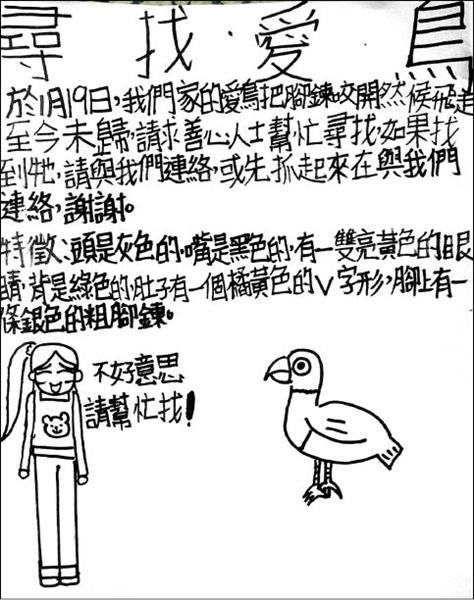 尋找愛鳥
於1月19日,我們家的愛鳥把腳鍊咬開然候飛走
至今未歸,請求善心人士幫忙尋找,如果找
到牠,請與我們連絡,或先抓起來在與我們
連絡,謝謝。
特徵:頭是灰色的,嘴是黑色的,有一雙亮黃色的眼
睛,背是綠色的,肚子有一個橘黃色的V字形,腳上有一
條銀色的粗腳鍊。
不好意思
請幫忙找!